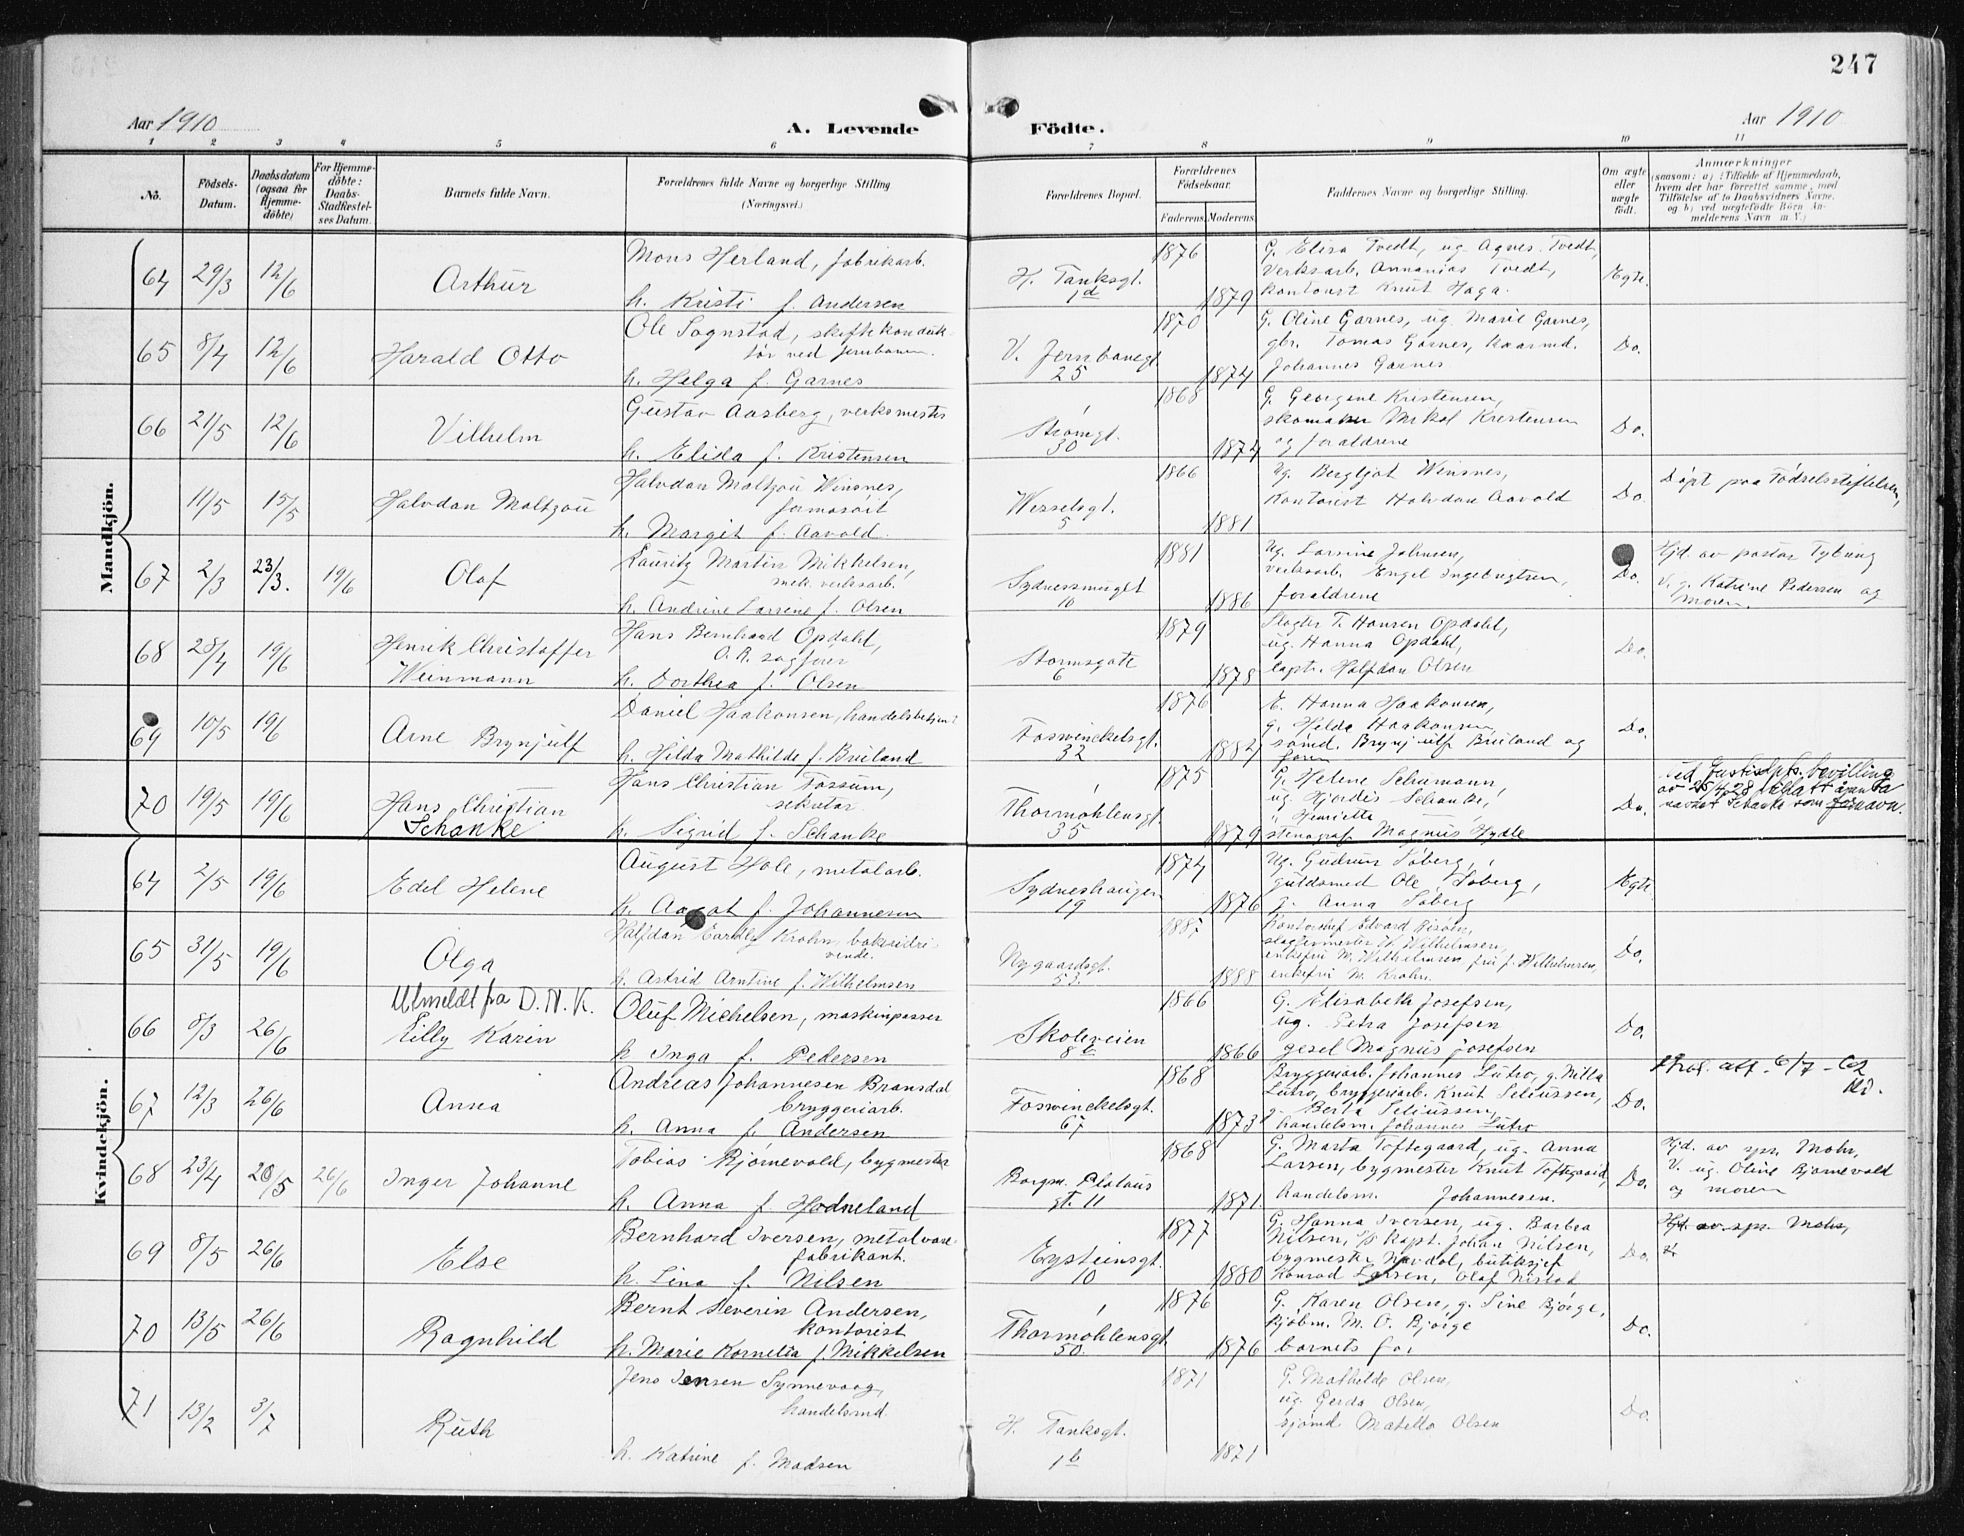 247
Aar 1910
A. Levende Födte.
Aar 1910
1 2 3 4 5 6 7 8 9 10 11
No.
Födsels-Datum.
Daabsdatum (ogsaa for Hjemmedöbte)
For Hjemmedöbte: Daabs-Stadfæstelses Datum.
Barnets fulde Navn.
Forældrenes fulde Navne og borgerlige Stilling (Næringsvei.)
Forældrenes Bopæl.
Forældrenes Födselsaar.
Faderens Moderens
Faddernes Navne og borgerlige Stilling.
Om ægte eller uægte födt.
Anmærkninger
(saasom: a) i Tilfælde af Hjemmedaab, hvem der har forrettet samme, med Tilföielse af to Daabsvidners Navne, og b) ved uægtefödte Börn Anmelderens Navn m. V.)
Mandkjön.
64 29/3 12/6 Arthur
Mons Herland, fabrikarb.
h. Kristi f. Andersen
H. Tanksgt. 1d
1876 1879
G. Elisa Tvedt, ug. Agnes Tvedt,
Verksarb. Annanias Tvedt,
kontorist Knut Haga.
Ægte.
65 8/4 12/6 Harald Otto
Ole Sognstad, skiftekonduk-
tør ved jernbanen.
h. Helga f. Garnes
V. Jernbanegt. 25
1870 1874
G. Oline Garnes, ug. Marie Garnes,
gbr. Tomas Garnes, kaarmd.
Johannes Garnes
Do.
66 21/5 12/6 Vilhelm
Gustav Aasberg, verksmester
h. Elida f. Kristensen
Strømgt. 30
1868 1874
G. Georgine Kristensen,
skomaker Mikal Kristensen
og forældrene
Do.
11/5 15/5 Halvdan Maltzou
Halvdan Maltzou Winsnes,
farmasøit
h. Margit f. Aavold.
Wesselsgt. 5
1866 1881
Ug. Bergljot Winsnes,
Kontorist Halvdan Aavold
Do.
Døpt paa Fødselsstiftelsen,
67 2/3 23/3. 19/6 Olaf
Lauritz Martin Mikkelsen,
mek. verksarb.
h. Andrine Larsine f. Olsen
Sydnessmuget 10
1881 1886
Ug. Larsine Johnsen,
verksarb. Engel Ingebrigtsen,
forældrene
Do.
Hjd. av pastor Tybring
V. g. Katrine Pedersen og
Moren.
68 28/4 19/6 Henrik Christoffer
Weinmann
Hans Bernhard Opdahl,
O. R. sagfører
h. Dorthea f. Olsen
Stormsgate 6
1879 1878
Slagter T. Hansen Opdahl,
ug. Hanna Opdahl,
capt. Halfdan Olsen
Do.
69 10/5 19/6 Arne Brynjulf
Daniel Haakonsen, handelsbetjent
h. Hilda Mathilde f. Bruland
Foswinckelsgt. 32
1876 1882
E. Hanna Haakonsen,
g. Hilda Haakonsen,
sømd. Brynjulf Bruland og
faren
Do.
70 19/5 19/6 Hans Christian
Schanke
Hans Christian Fossum,
sekretær
h. Sigrid f. Schanke
Thormøhlensgt. 35
1875 1879
G. Helene Schumann,
ug. Hjørdis Schanke,
" Henriette "
stenograf Magnus Hydle
Do.
ved Justisdpts. bevilling
av 25/4.28 tillatt å anta
navnet Schanke som fornavn.
Kvindekjön.
64 2/5 19/6 Edel Helene
August Hole, metalarb.
h. Aagot f. Johannesen
Sydneshaugen 19
1874 1876
Ug. Gudrun Søberg,
guldsmed Ole Søberg,
g. Anna Søberg
Ægte
65 31/5 19/6 Olga
Halfdan Eardly Krohn, bokhdri-
vende.
h. Astrid Arntine f. Wilhelmsen
Nygaardsgt. 53.
1887 1888
slagtermester H. Wilhelmsen,
enkefru M. Wilhelmsen, fru J. Wilhelmsen,
enkefru M. Krohn.
Do.
Utmeldt fra D. N. K.
66 8/3 26/6 Lilly Karin
Oluf Michelsen, maskinpasser
h Inga f. Pedersen
Skoleveien 8b
1866 1866
G. Elisabeth Josefsen,
ug. Petra Josefsen
gesel Magnus Josefsen
Do.
67 12/3 26/6 Anna
Andreas Johannesen Bransdal
bryggeriarb.
h. Anna f. Andersen
Foswinckelsgt. 67
1868 1873
Bryggeriarb. Johannes Lutro, g. Nilla
Lutro, bryggeriarb. Knut Seliussen,
g. Berta Seliussen,
handelsm. Johannes Lutro
Do.
Prov. att. 6/7-62
68 23/4 20/5 26/6 Inger Johanne
Tobias Bjørnevold, bygmester
h. Anna f. Hodneland
Borgm. Platous
gt. 11
1868 1871.
G. Marta Toftegaard, ug. Anna
Larsen, bygmester Knut Toftegaard,
handelsm. Johannesen.
Do.
Hjd. av spr. Mohr,
V. ug. Oline Bjørnevold
og moren
69 8/5 26/6 Else
Bernhard Iversen, metalvare-
fabrikant.
h. Lina f. Nilsen
Eysteinsgt. 10
1877 1880
G. Hanna Iversen, ug. Barbra
Nilsen, kapt. Johan Nilsen,
bygmester Navdal, butiksjef
Konrad Larsen, Olaf Nistad
Do.
Hjd. av spr. Mohr,
V.
70 13/5 26/6 Ragnhild
Bernt Severin Andersen,
kontorist
h. Marie Kornelia f. Mikkelsen
Thormøhlensgt. 50.
1876 1876
G. Karen Olsen, g. Sine Bjørge,
kjøbm. M. O. Bjørge
barnets far
Do.
71 13/2 3/7 Ruth
Jens Jensen Synnevaag,
handelsmd.
h. Katrine f. Madsen
H. Tanksgt. 1b
1871 1871
G. Mathilde Olsen,
ug. Gerda Olsen,
sjømd. Olsen
Do.